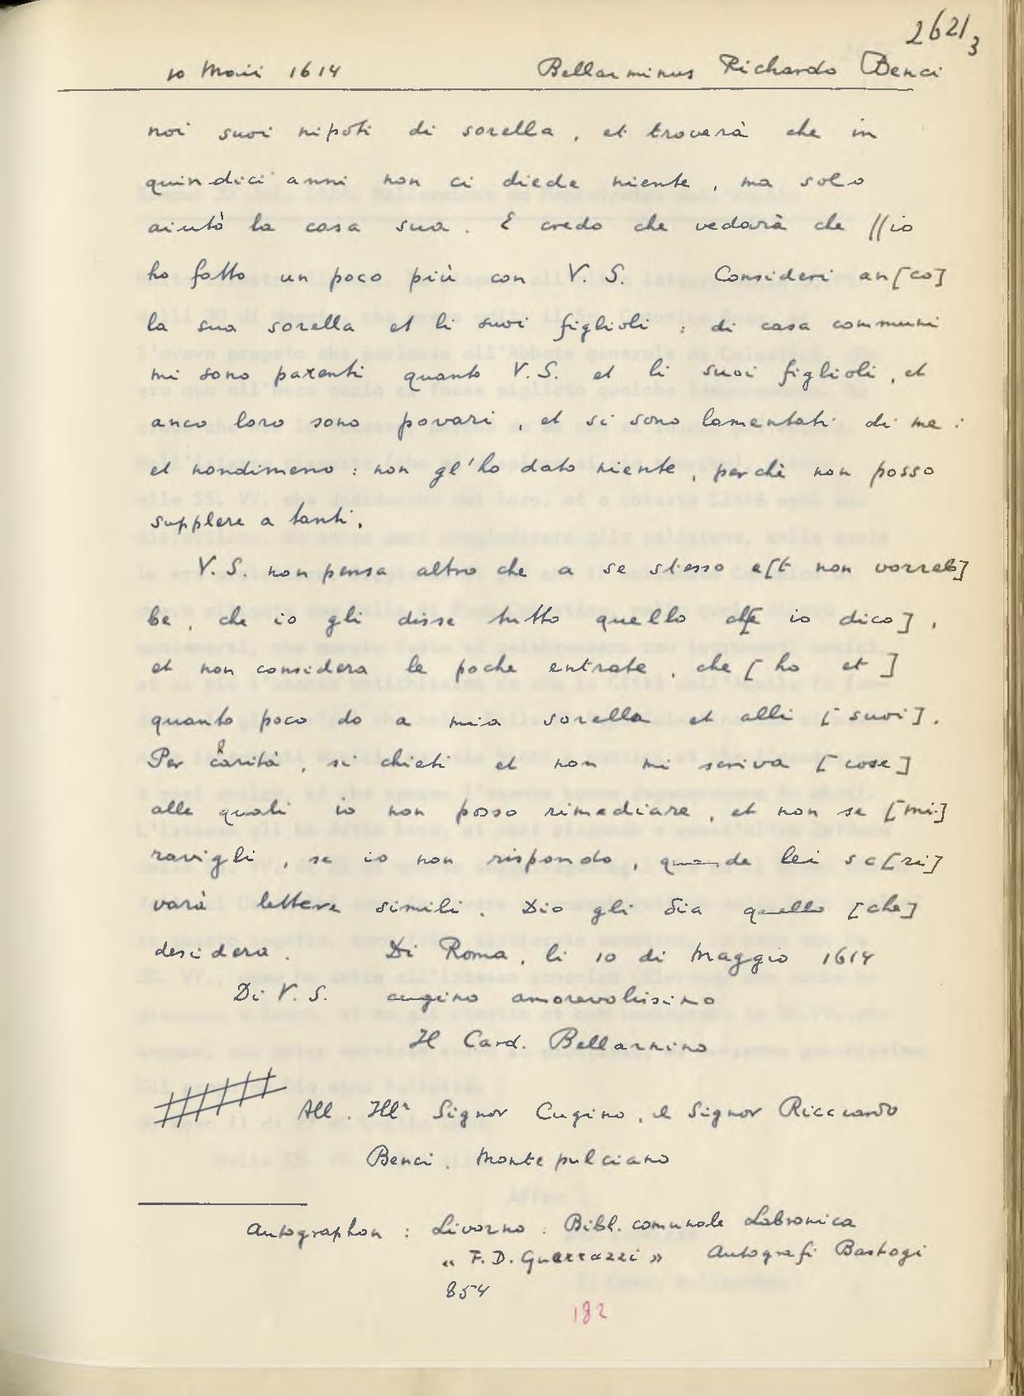 262/3
10 Maii 1614 Bellarminus Richardo Benci
noi suoi nipoti di sorella, et trovarà che in
quindici anni non ci diede niente, ma solo
aiutò la casa sua. E credo che vedarà che //io
ho fatto un poco più con V. S. Consideri an[co]
la sua sorella et li suoi figlioli ; di casa communi
mi sono parenti quanto V. S. et li suoi figlioli, et
anco loro sono povari, et si sono lamentati di me :
et nondimeno : non gl'ho dato niente, perchè non posso
supplere a tanti.
V. S. non pensa altro che a se stesso e[t non vorreb]
be, che io gli disse tutto quello che [io dico],
et non considera le poche entrate, che [ho et]
quanto poco do a mia sorella et alli [suoi].
Per carità, si chieti et non mi scriva [cose]
alle quali io non posso rimediare, et non se [mi]
ravigli, se io non rispondo, quando lei sc[ri]
varà lettere simili. Dio gli dia quello [che]
desidera. Di Roma, li 10 di Maggio 1614
Di V. S. cugino amorevolissimo
Il Card. Bellarmino
All. Ill^r Signor Cugino, il Signor Ricciardo
Benci. Montepulciano
Autographon : Livorno : Bibl. comunale Labronica
« F. D. Guerrazzi » Autografi Bastogi
854
182